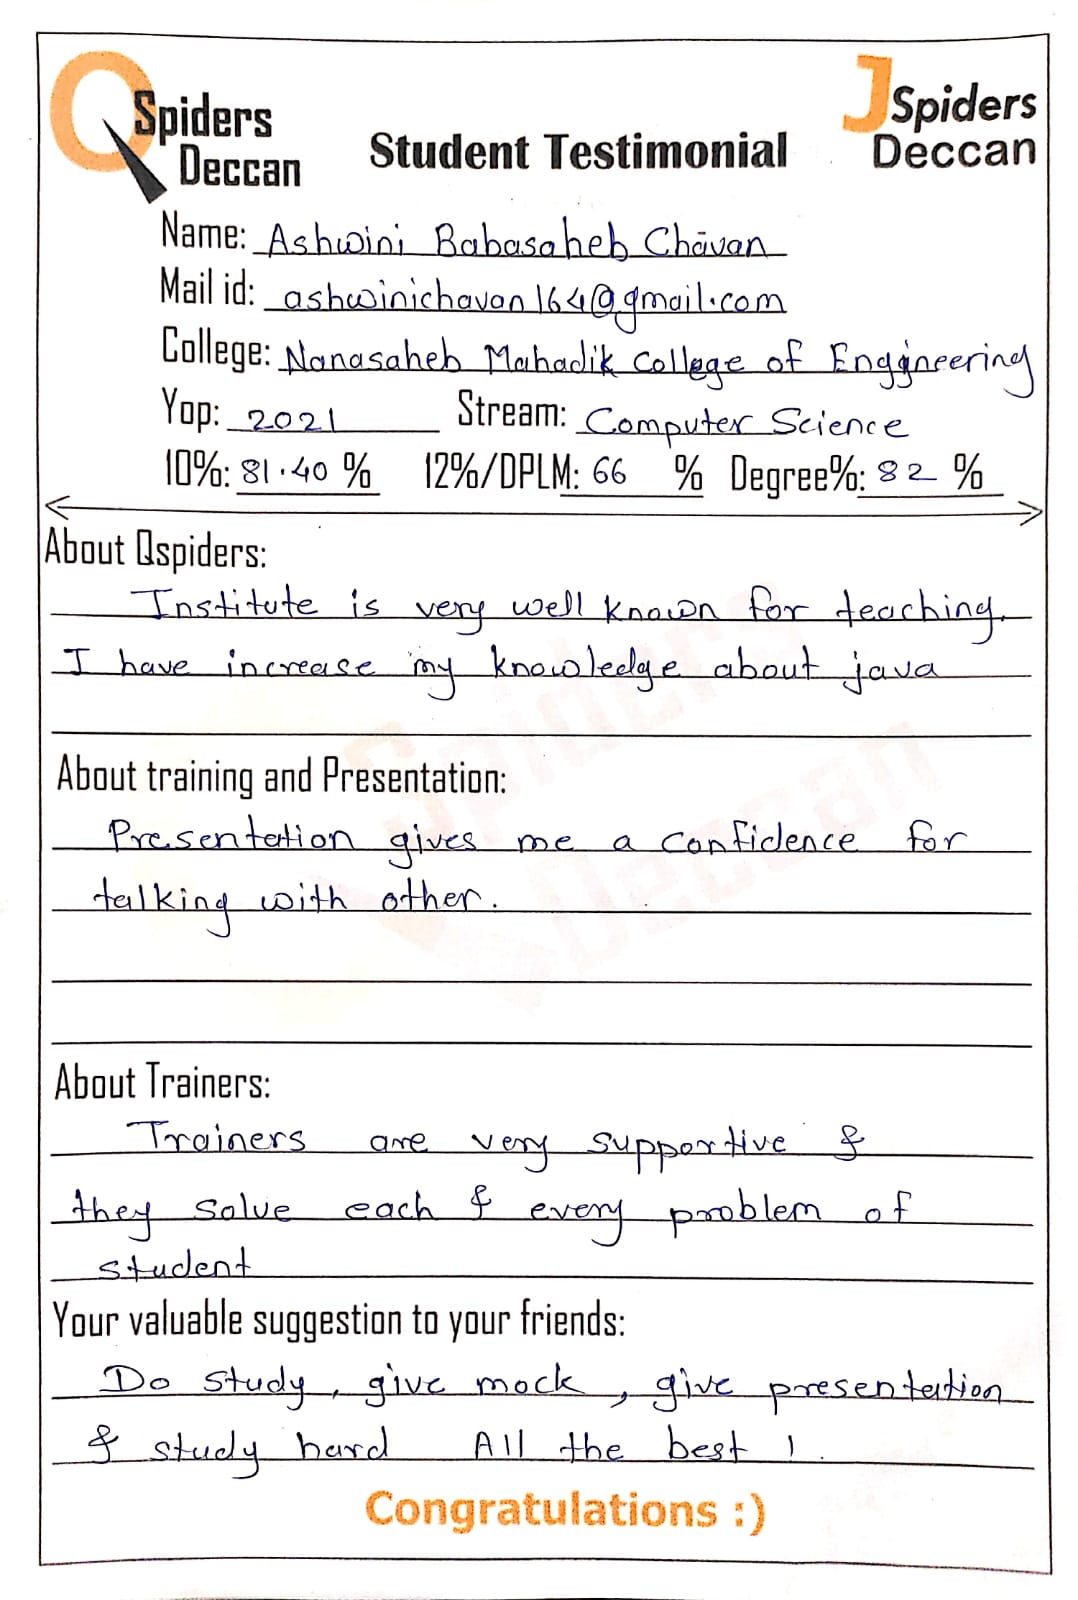 QSpiders
Deccan
JSpiders
Deccan
Student Testimonial
Name: Ashwini Babasaheb Chavan
Mail id: ashwinichavan164@gmail.com
College: Nanasaheb Mahadik College of Enggineering
Yop: 2021 Stream: Computer Science
10%: 81.40 % 12%/DPLM: 66 % Degree%: 82 %
About Qspiders:
Institute is very well known for teaching.
I have increase my knowledge about java
About training and Presentation:
Presentation gives me a confidence for
talking with other.
About Trainers:
Trainers are very supportive &
they solve each & every problem of
student
Your valuable suggestion to your friends:
Do study, give mock, give presentation
& study hard All the best !
Congratulations :)
Spiders
Deccan